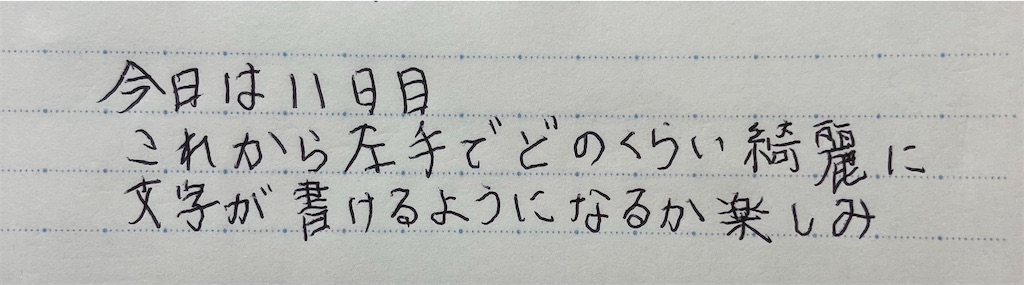 今日は11日目
これから左手でどのくらい綺麗に
文字が書けるようになるか楽しみ